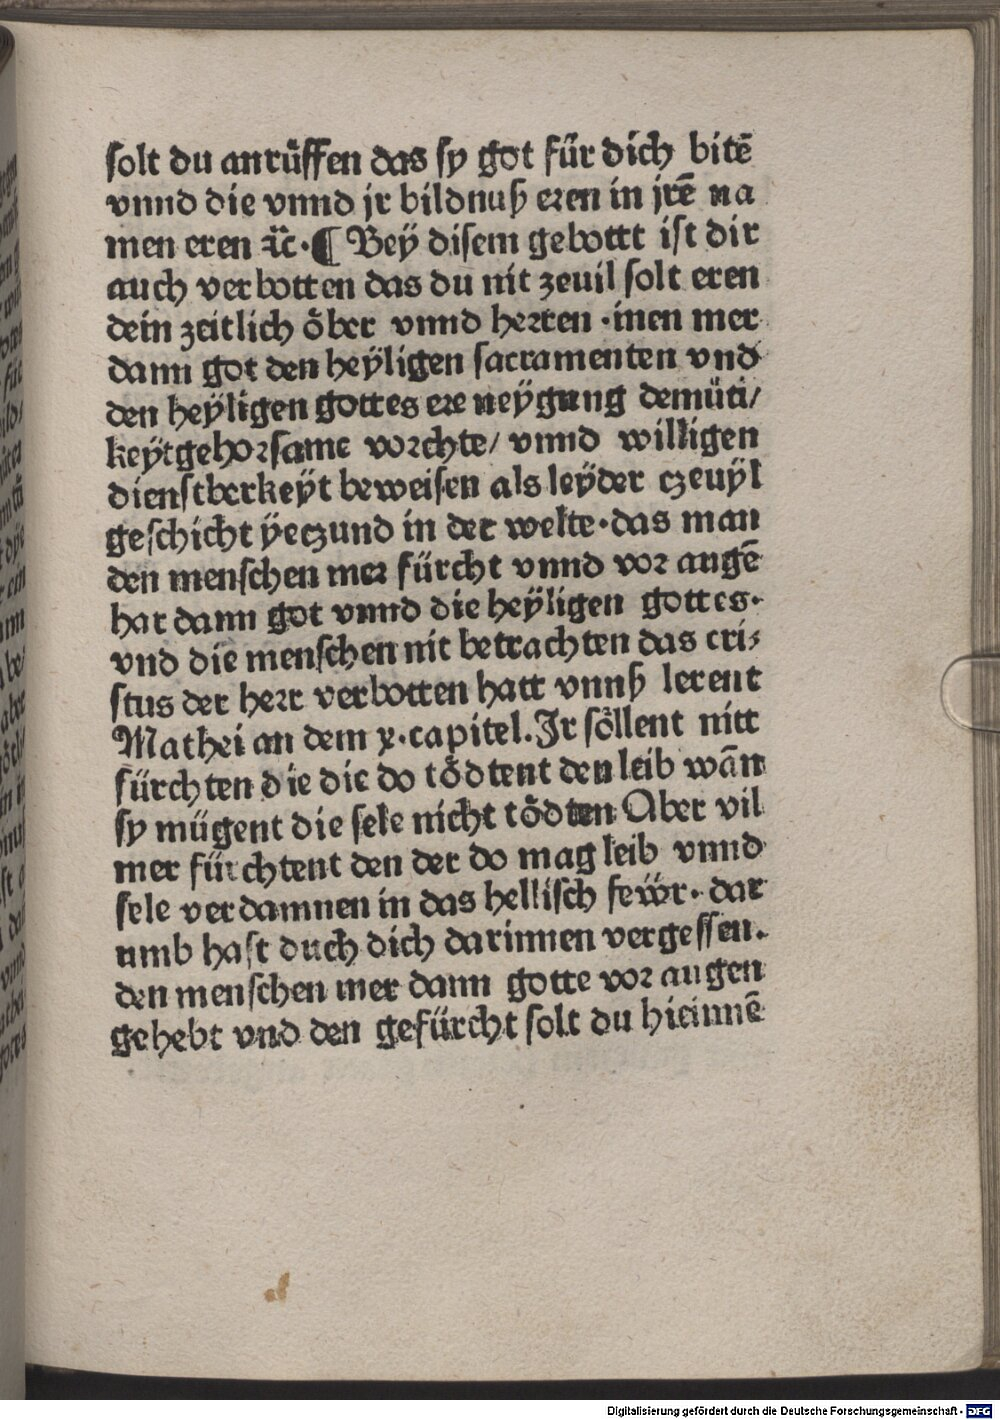 solt du anrüffen das sy got für dich bitē
vnnd die vnnd jr bildnuß eren in jrē na
men eren ꝛc̈·¶ Beÿ disem gebottt ist dir
auch verbotten das du nit zeuil solt eren
dein zeitlich öber vnnd herren ·inen mer
dann got den heÿligen sacramenten vnd
den heÿligen gottes ere neÿgung demüti/
keÿtgehorsame vorchte/ vnnd willigen
dienstberkeÿt beweisen als leÿder czeuÿl
geschicht ÿeczund in der welte·das man
den menschen mer fürcht vnnd vor augē
hat dann got vnnd die heÿligen gottes·
vnd die menschen nit betrachten das cri/
stus der herr verbotten hatt vnnß lerent
Mathei an dem x·capitel.Jr söllent nitt
fürchten die die do tödtent den leib wān
sy mügent die sele nicht tödten Aber vil
mer fürchtent den der do mag leib vnnd
sele verdamnen in das hellisch fewr· dar
umb hast duch dich darinnen vergessen.
den menschen mer dann gotte vor augen
gehebt vnd den gefürcht solt du hieinnē
Digitalisierung gefördert durch die Deutsche Forschungsgemeinschaft - DFG